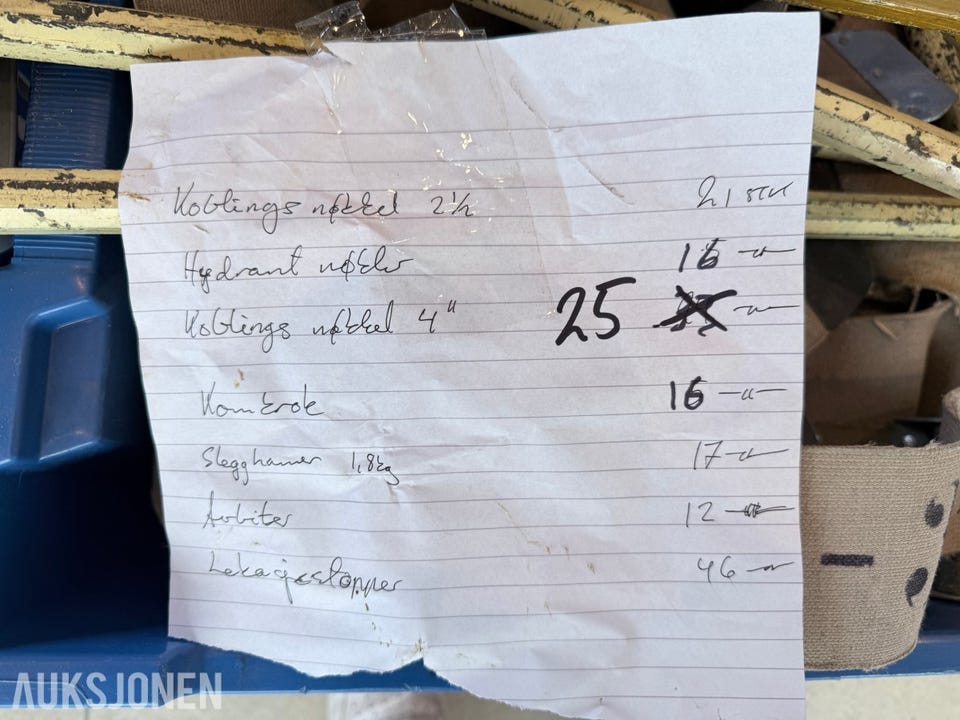 Koblings nøkkel 2½ 21 stk
Hydrant nøkler 16 -"-
Koblings nøkkel 4" 25 -"-
Kombrok 16 -"-
Slegghammer 1,8kg 17 -"-
Avbiter 12 -"-
Lekasjestopper 46 -"-
AUKSJONEN